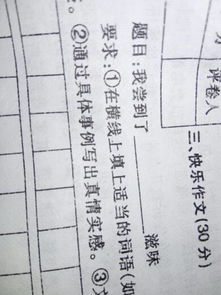 评卷人
三、快乐作文(30分)
题目:我尝到了________滋味
要求:①在横线上填上适当的词语(如
。②通过具体事例写出真情实感。③